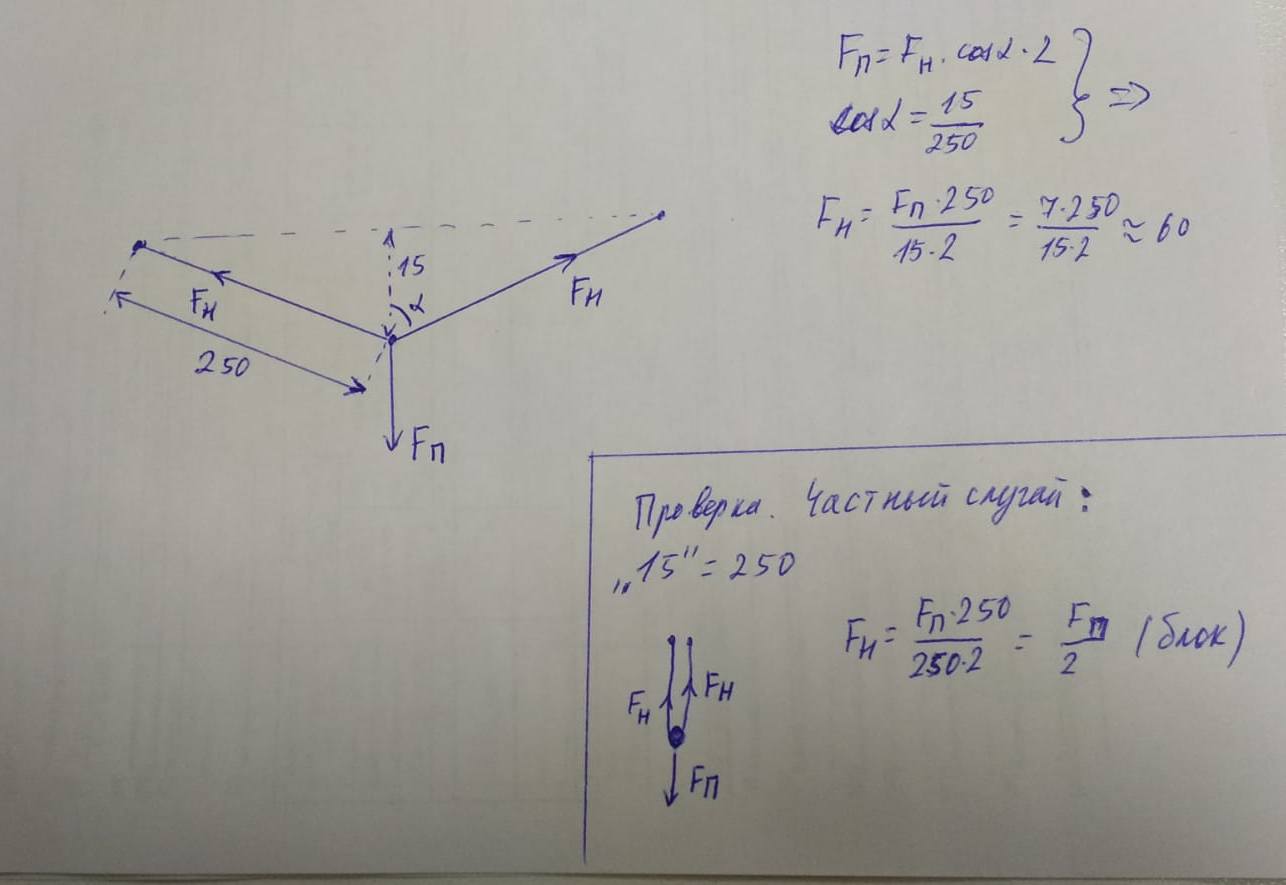 Fп = Fн · cosα · 2
cosα = 15/250 } ⇒
Fн = Fп·250/15·2 = 7·250/15·2 ≈ 60
15
α
Fн
Fн
250
Fп
Проверка. Частный случай:
„15" = 250
Fн = Fп·250/250·2 = Fп/2 (блок)
Fн
Fн
Fп